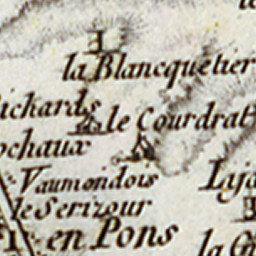 la Blancquetier
ichards
le Courdrat
ochaux
Vaumondois
Laja
le Serizour
en Pons
la Gu